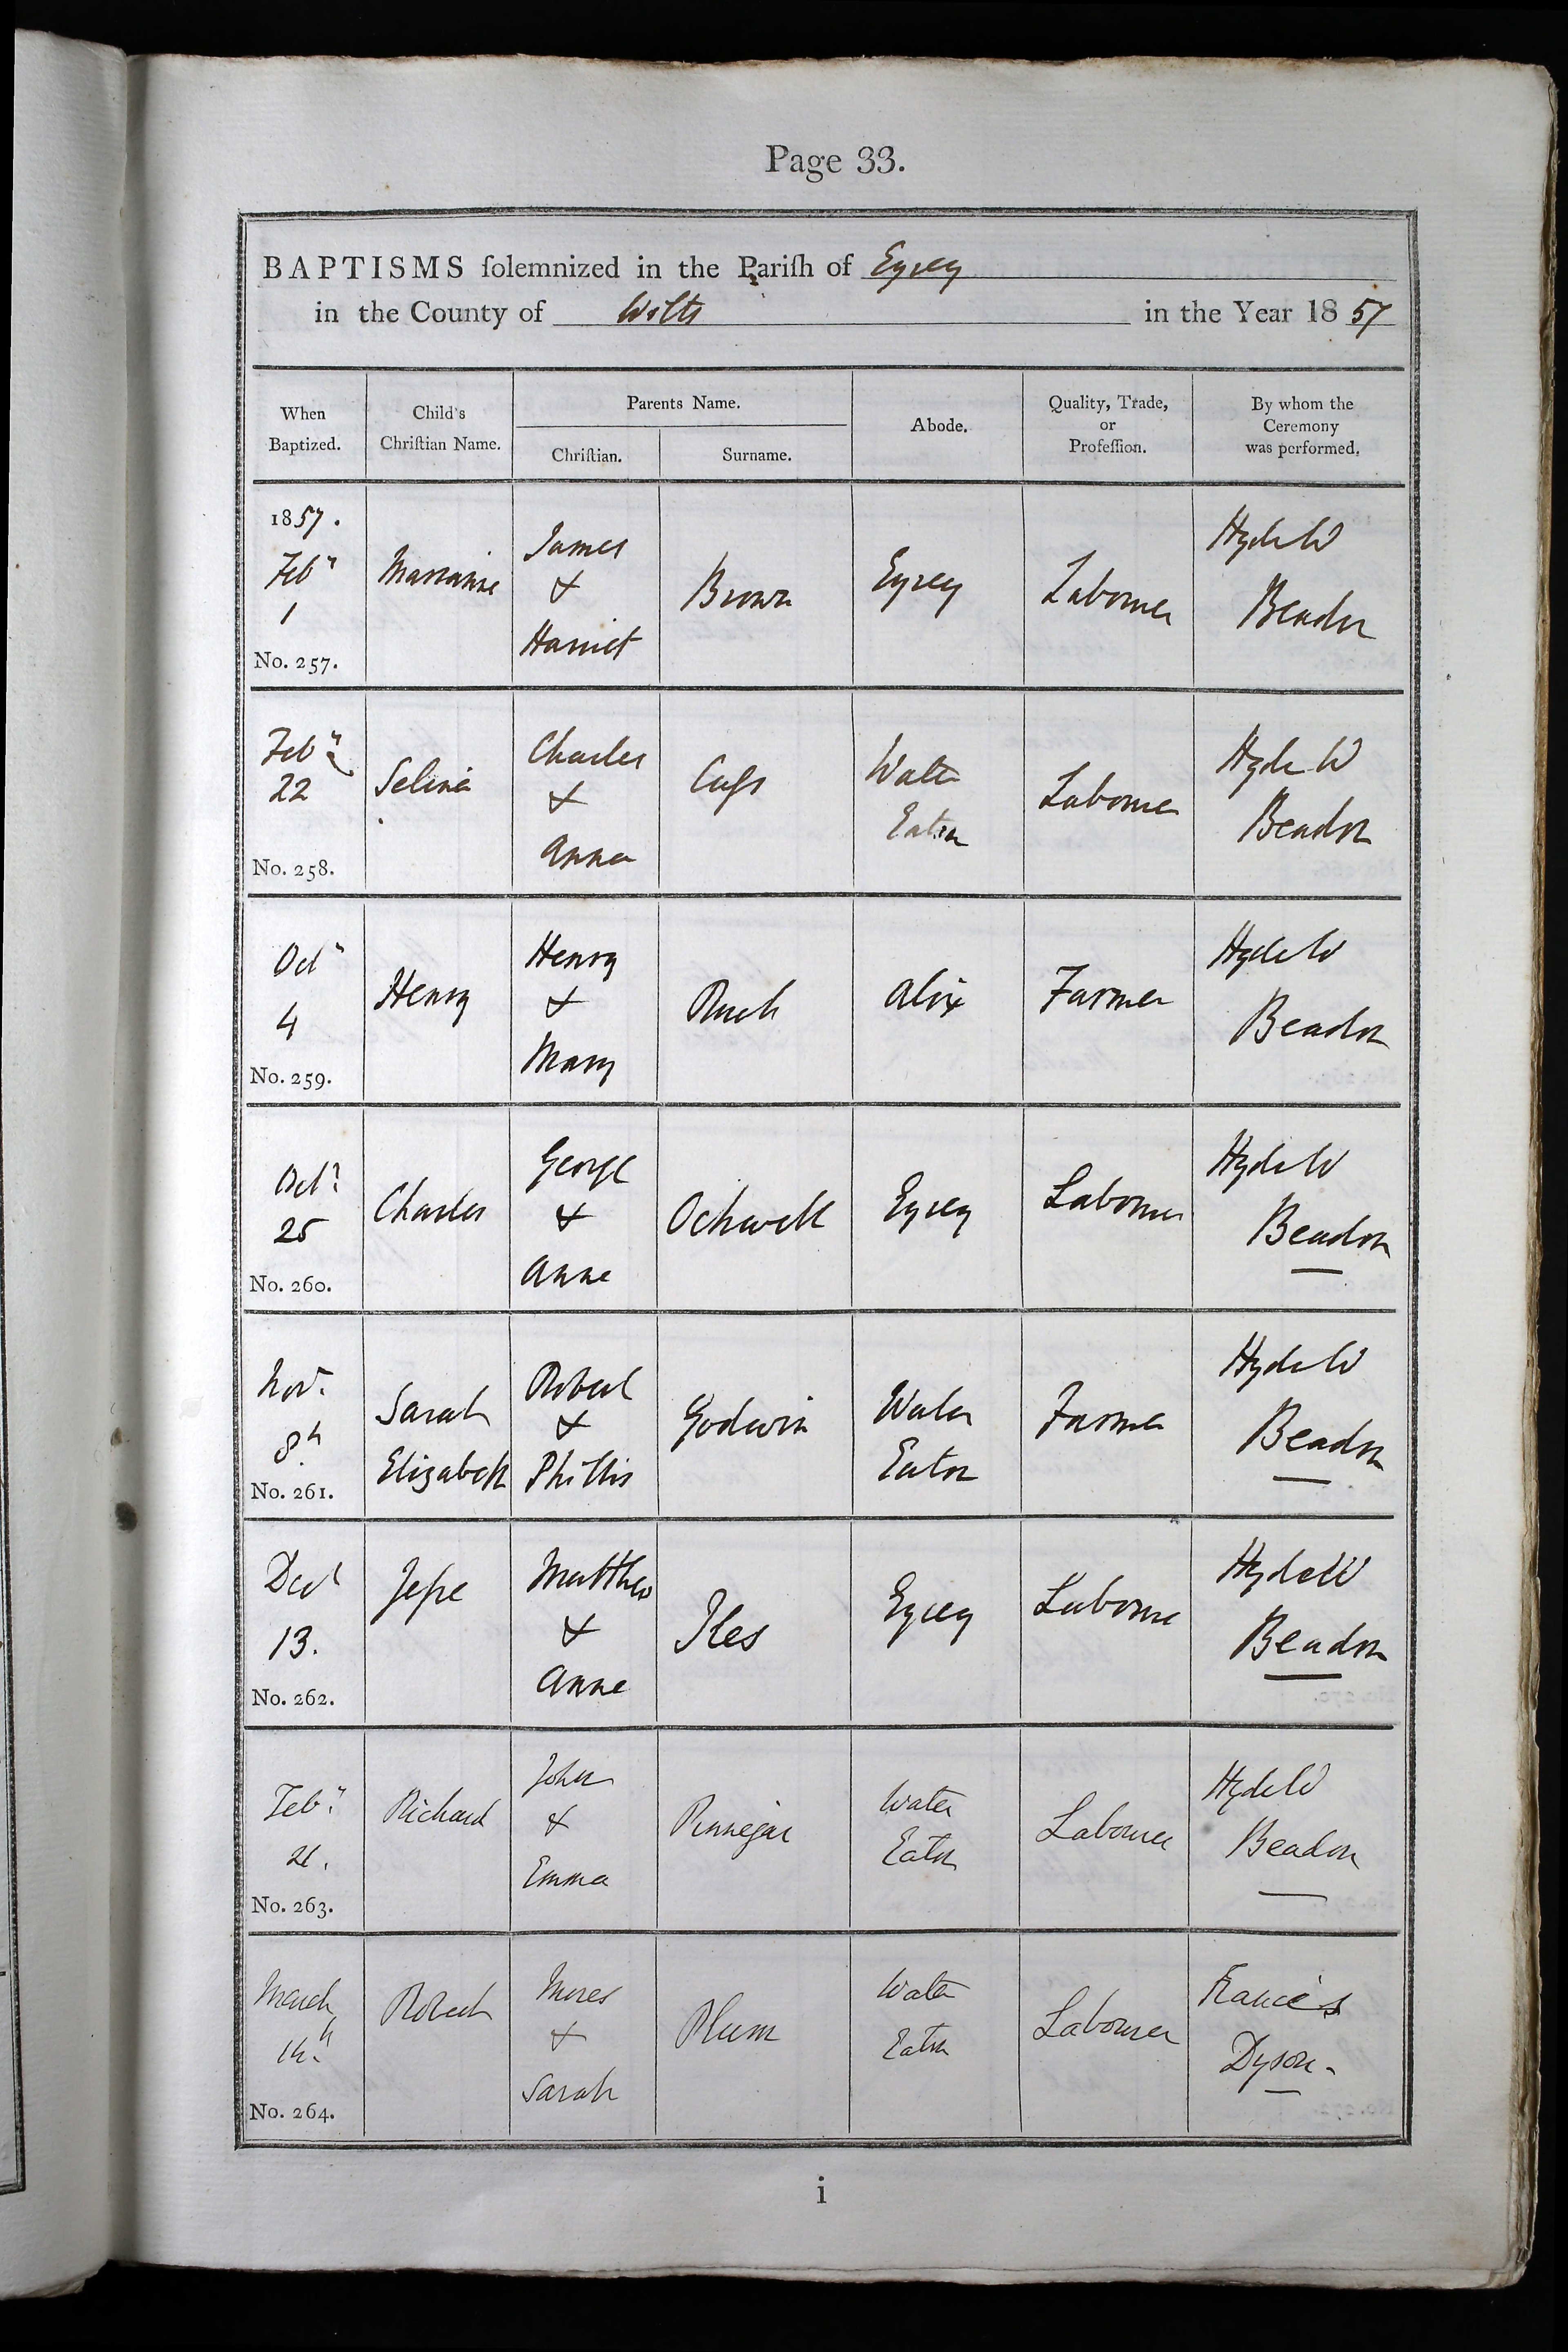 Page 33.
BAPTISMS ſolemnized in the Pariſh of Eysey
in the County of Wilts in the Year 18 57
When
Baptized.
Child's
Chriſtian Name.
Parents Name.
Chriſtian.
Surname.
Abode.
Quality, Trade,
or
Profeſſion.
By whom the
Ceremony
was performed.
1857.
Feby
1
No. 257.
Marianne
James
&
Harriet
Brown
Eysey
Labourer
Hyde W
Beadon
Feby
22
No. 258.
Selina
Charles
&
Anna
Cuſs
Water
Eaton
Labourer
Hyde W
Beadon
Octr
4
No. 259.
Henry
Henry
&
Mary
Ruck
Alex
Farmer
Hyde W
Beadon
Octr
25
No. 260.
Charles
George
&
Anne
Ockwell
Eysey
Labourer
Hyde W
Beadon
Novr.
8th
No. 261.
Sarah
Elizabeth
Robert
&
Phillis
Godwin
Water
Eaton
Farmer
Hyde W
Beadon
Decr
13.
No. 262.
Jeſse
Matthew
&
Anne
Iles
Eysey
Labourer
Hyde W
Beadon
Feby.
21.
No. 263.
Richard
John
&
Emma
Pinnegar
Water
Eaton
Labourer
Hyde W
Beadon
March
14th
No. 264.
Robert
Moses
&
Sarah
Plum
Water
Eaton
Labourer
Francis
Dyson.
i